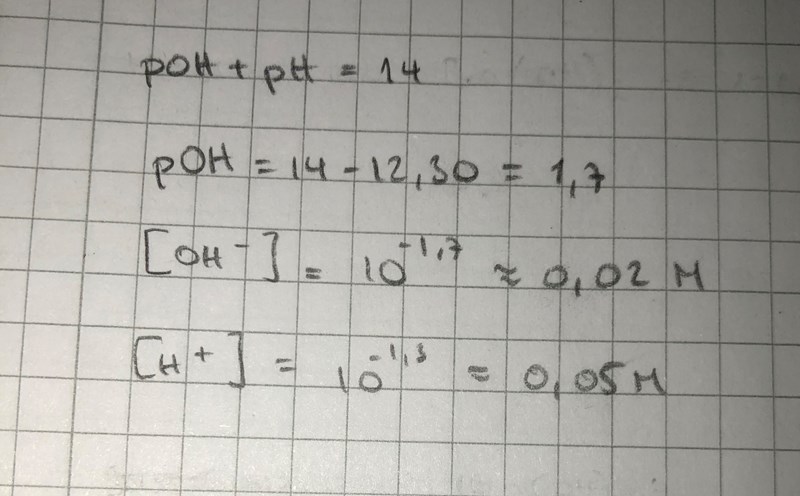 pOH + pH = 14
pOH = 14 - 12,30 = 1,7
[OH⁻] = 10⁻¹,⁷ ≈ 0,02 M
[H⁺] = 10⁻¹,³ = 0,05 M